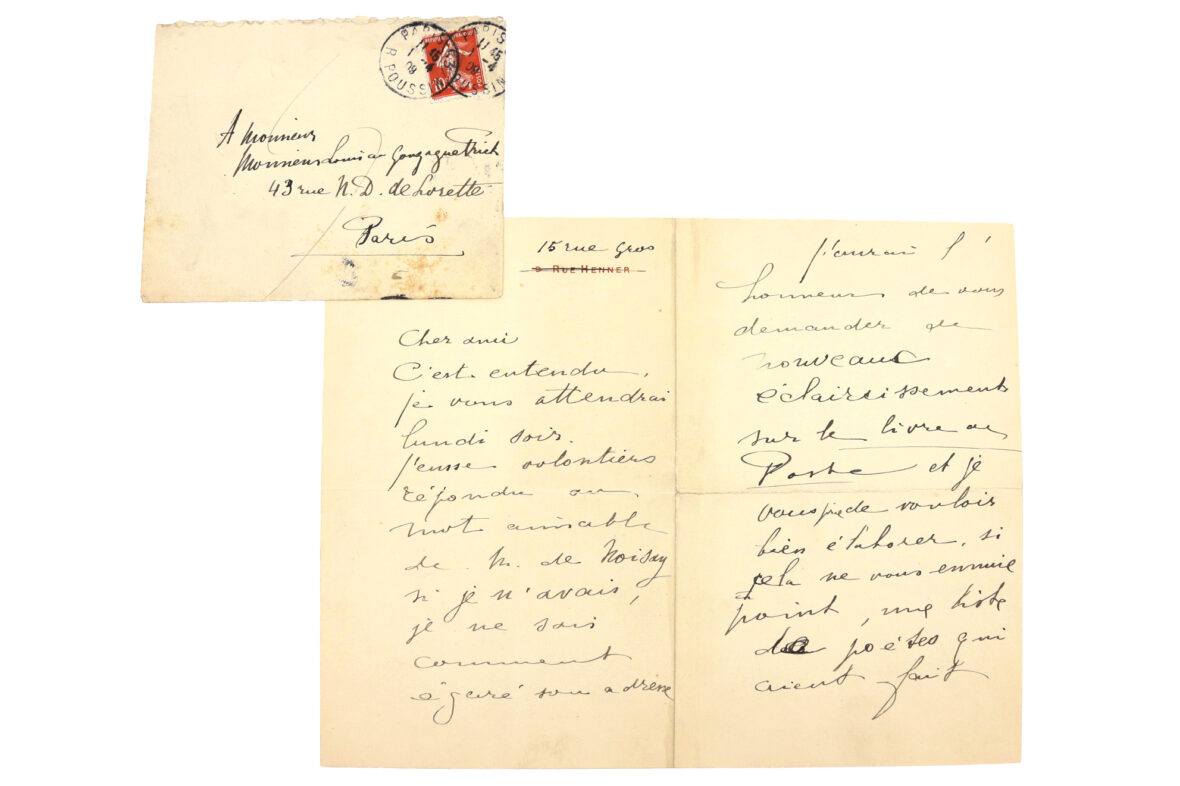 PARIS
R. POUSSIN
A Monsieur
Monsieur Louis de Gonzague Frick
43 rue N. D. de Lorette
Paris
15 rue Gros
9 RUE HENNER
Cher ami
C'est entendu,
je vous attendrai
lundi soir.
J'eusse volontiers
répondu au
mot aimable
de M. de Noisay
si je n'avais,
je ne sais
comment
égaré son adresse
J'aurai l'
honneur de vous
demander de
nouveaux
éclaircissements
sur le livre de
Poste et je
vous prie de vouloir
bien élaborer, si
cela ne vous ennuie
point, une liste
de poètes qui
aient fait